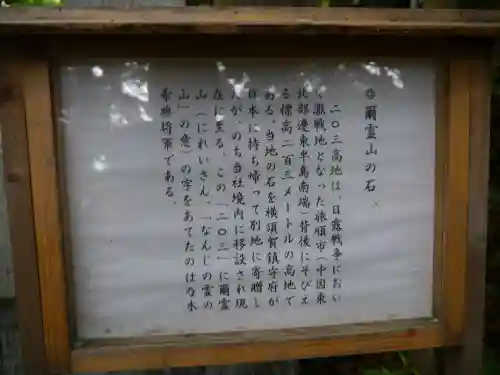 ◎爾霊山の石
二〇三高地は、日露戦争におい
て激戦地となった旅順市(中国東
北部遼東半島南端)背後にそびえ
る標高二百三メートルの高地で
ある。当地の石を横須賀鎮守府が
日本に持ち帰って別地に寄贈し
が、のち当社境内に移設され現
在に至る。この「二〇三」に爾霊
山(にれいさん、「なんじの霊の
山」の意)の字をあてたのは乃木
希典将軍である。